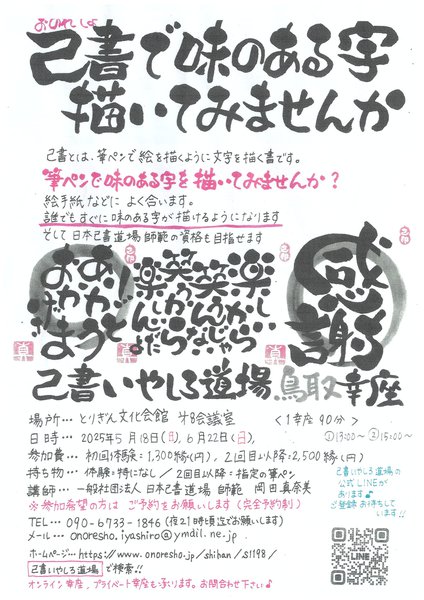 おのれしょ
己書で味のある字
描いてみませんか
己書とは、筆ペンで絵を描くように文字を描く書です。
筆ペンで味のある字を描いてみませんか？
絵手紙などに よく合います。
誰でもすぐに味のある字が描けるようになります
そして日本己書道場師範の資格も目指せます
ありがとう
おかげさま
楽しいから
笑うんじゃない
笑うから
楽しいんだよ
感謝
己書いやしろ道場 鳥取幸座
場所… とりぎん文化会館 第8会議室 <1幸座 90分>
日時… 2025年5月18日(日), 6月22日(日), ①13:00〜 ②15:00〜
参加費… 初回(体験)=1,300線(円), 2回目以降=2,500線(円)
持ち物… 体験=特になし / 2回目以降=指定の筆ペン
講師… 一般社団法人 日本己書道場 師範 岡田真奈美
※参加希望の方は ご予約をお願いします(完全予約制)
TEL… 090-6733-1846 (夜21時頃迄でお願いします)
メール… onoresho.iyashiro@ymail.ne.jp
ホームページ… https://www.onoresho.jp/shihan/s1198/
己書いやしろ道場 で検索!!
オンライン幸座、プライベート幸座も承ります。お問合わせ下さい♪
己書いやしろ道場の
公式LINEが
あります♪
ご登録お待ちして
います!!
LINE